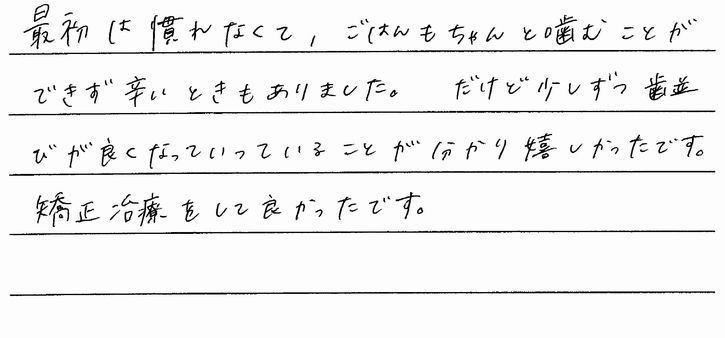 最初は慣れなくて，ごはんもちゃんと噛むことが
できず辛いときもありました。 だけど少しずつ歯並
びが良くなっていっていることが分かり嬉しかったです。
矯正治療をして良かったです。